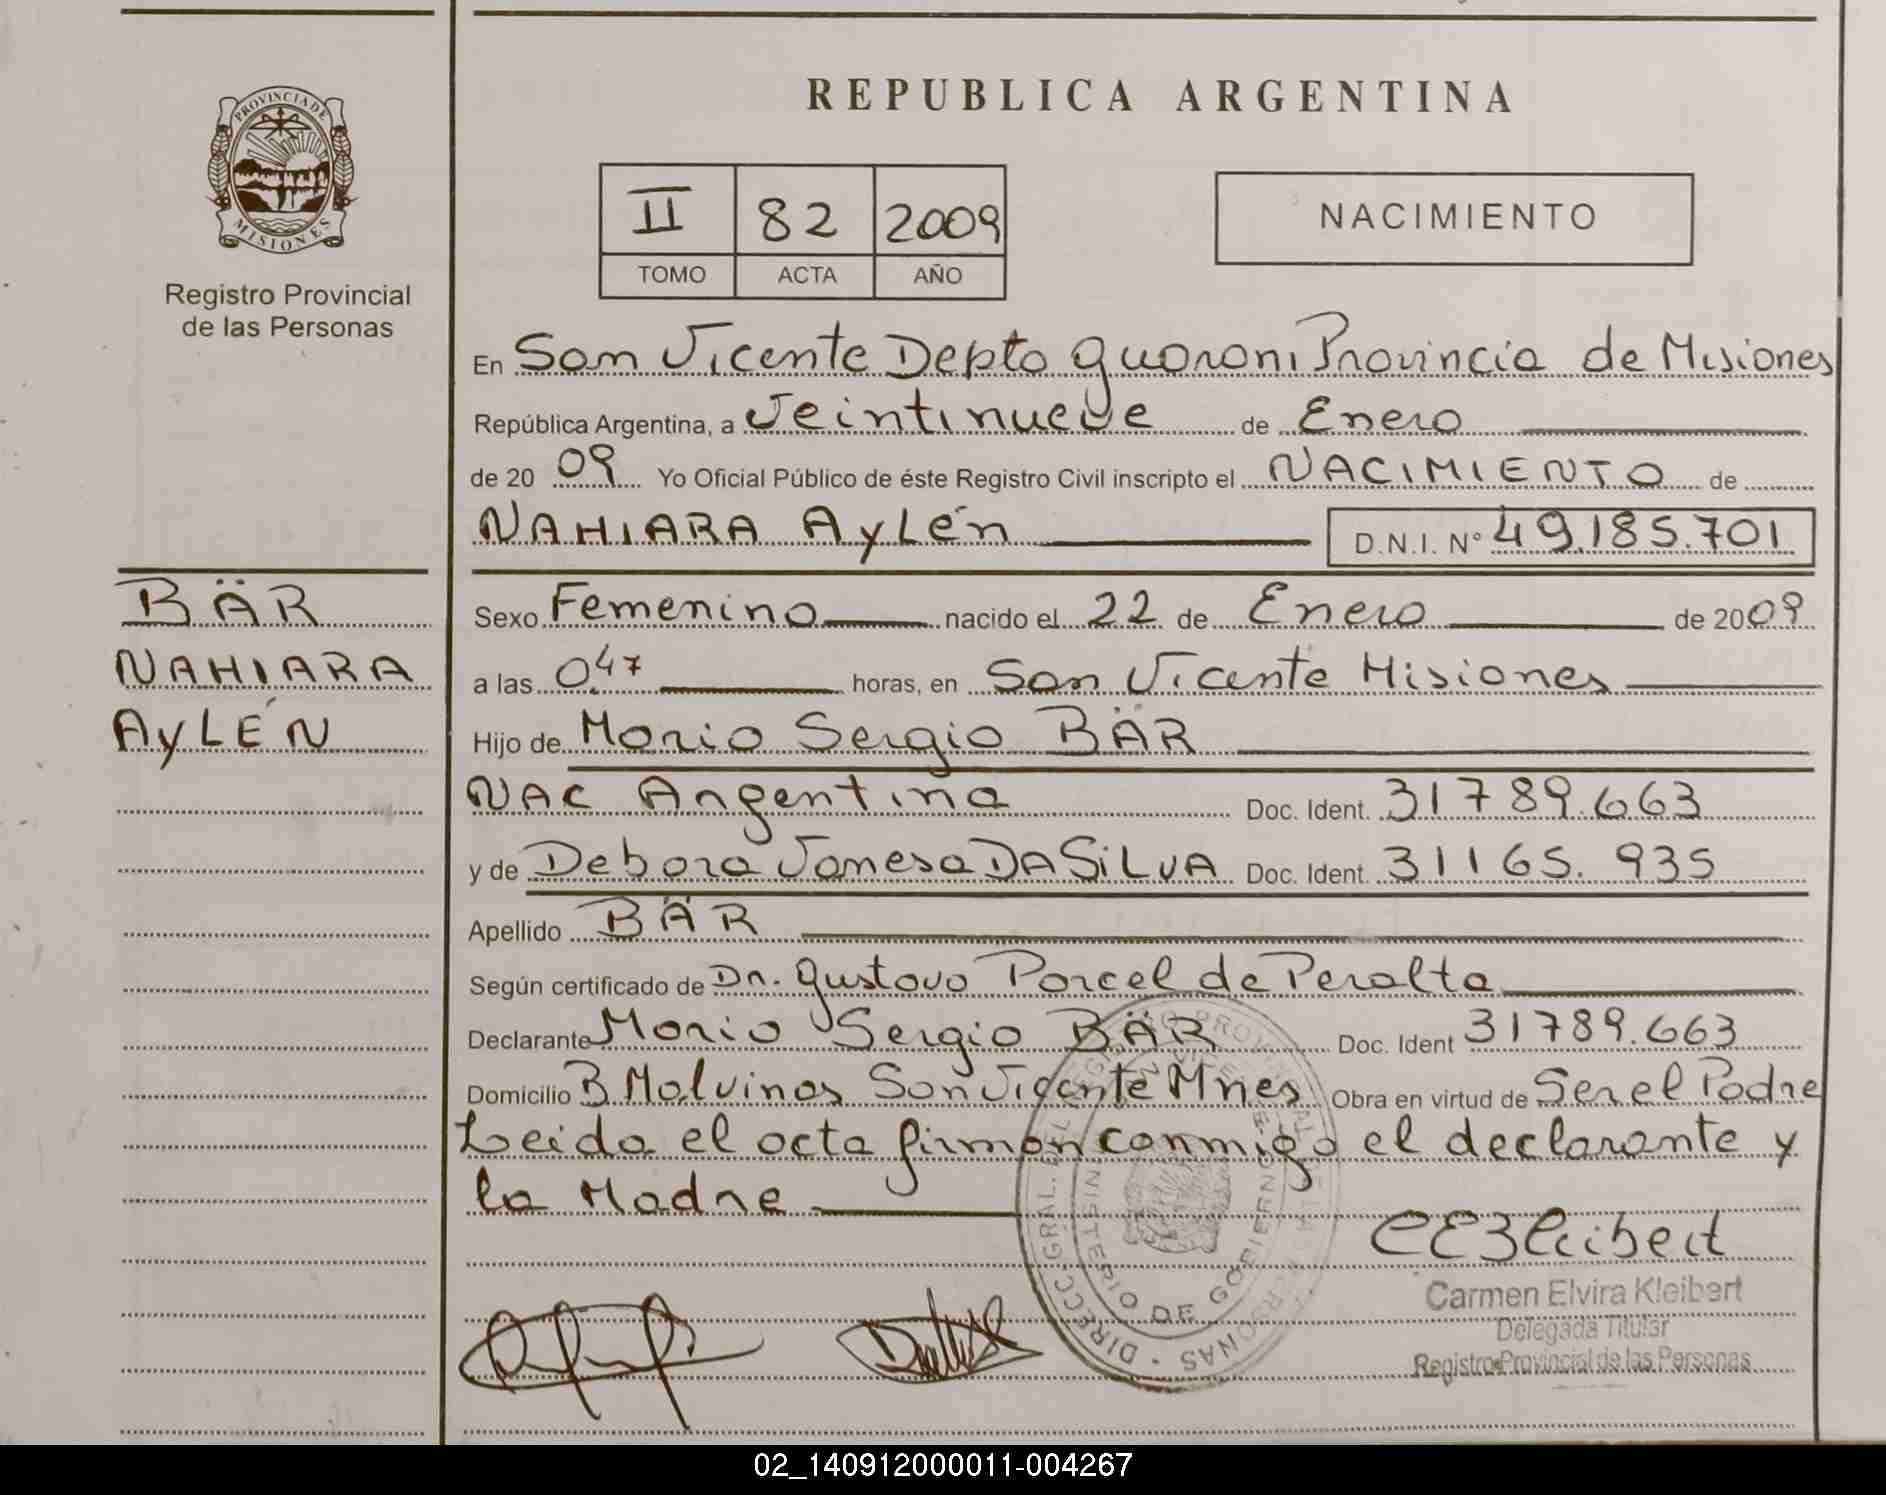 REPUBLICA ARGENTINA
PROVINCIA DE
MISIONES
Registro Provincial
de las Personas
II 82 2009
TOMO ACTA AÑO
NACIMIENTO
En San Vicente Depto Guarani Provincia de Misiones
República Argentina, a Veintinueve de Enero
de 2009 Yo Oficial Público de éste Registro Civil inscripto el NACIMIENTO de
NAHIARA AyLén D.N.I. Nº 49.185.701
BÄR
NAHIARA
AyLÉN
Sexo Femenino nacido el 22 de Enero de 2009
a las 0.47 horas, en San Vicente Misiones
Hijo de Mario Sergio BÄR
NAC Argentina Doc. Ident. 31789.663
y de Debora Vanesa DA SiLVA Doc. Ident. 31165.935
Apellido BÄR
Según certificado de Dr. Gustavo Porcel de Peralta
Declarante Mario Sergio BÄR Doc. Ident 31789.663
Domicilio B Malvinas San Vicente Mnes Obra en virtud de Ser el Padre
Leida el acta firman conmigo el declarante y
la Madre
CEKleibert
Carmen Elvira Kleibert
Delegada Titular
Registro Provincial de las Personas
MINISTERIO DE GOBIERNO
02_140912000011-004267